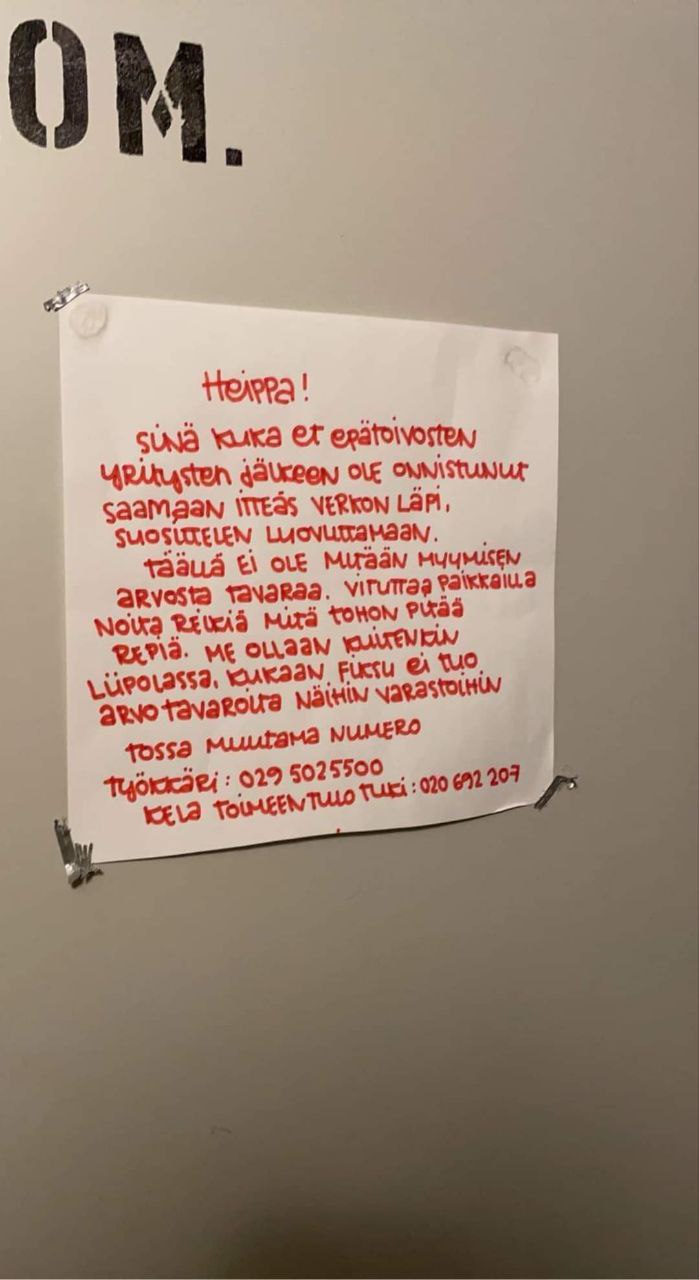 OM.
Heippa!
Sinä kuka et epätoivosten
yritysten jälkeen ole onnistunut
saamaan itteäs verkon läpi,
suosittelen luovuttamaan.
Täällä ei ole mitään myymisen
arvosta tavaraa. Vituttaa paikkailla
noita reikiä mitä tohon pitää
repiä. Me ollaan kuitenkin
Liipolassa, kukaan fiksu ei tuo
arvotavaroita näihin varastoihin
Tossa muutama numero
Työkkäri: 029 5025500
Kela toimeentulotuki: 020 692 207